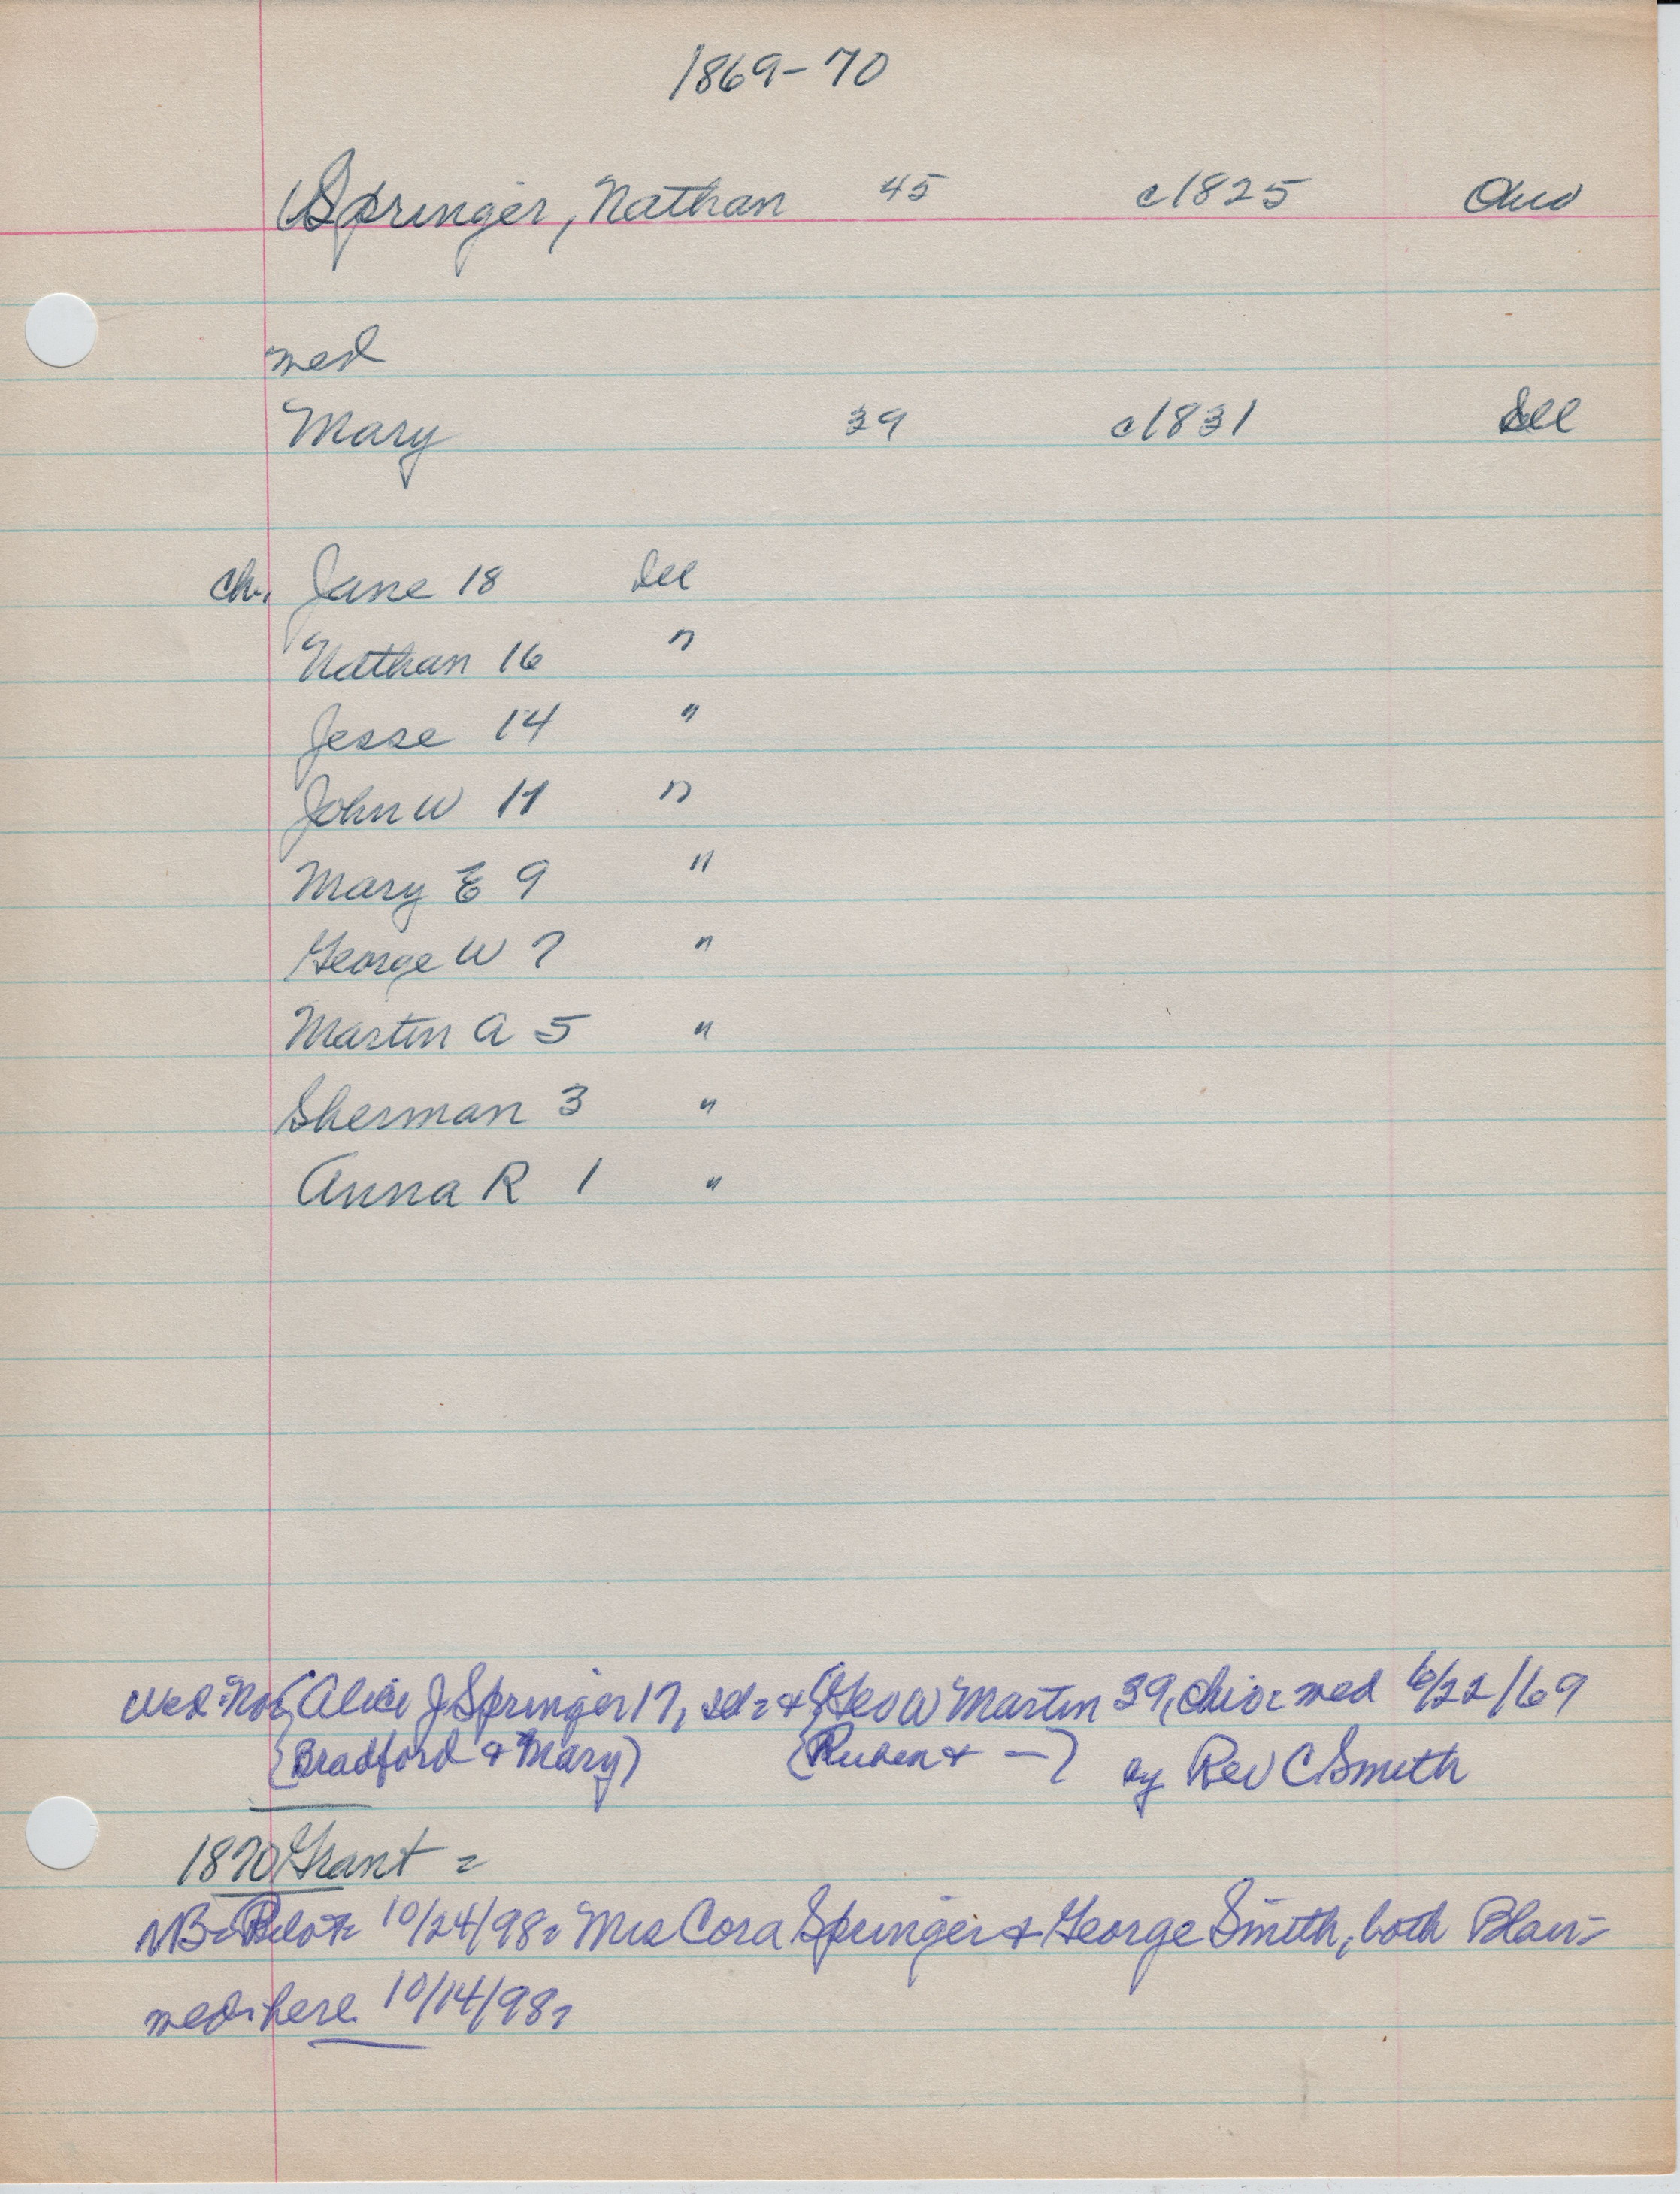 1869-70
Springer, Nathan 45 c1825 Ohio
med
Mary 39 c1831 Ill
ch. Jane 18 Ill
Nathan 16 "
Jesse 14 "
John W 11 "
Mary E 9 "
George W 7 "
Martin A 5 "
Sherman 3 "
Anna R 1 "
{Alice J Springer 17, & {Geo W Martin 39, Ohio= med 6/22/69
{Bradford & Mary) {Ruben & —) by Rev C Smith
1870 Grant =
NB= Pilot= 10/24/98= Mrs Cora Springer & George Smith, both Blair=
med here 10/14/98=